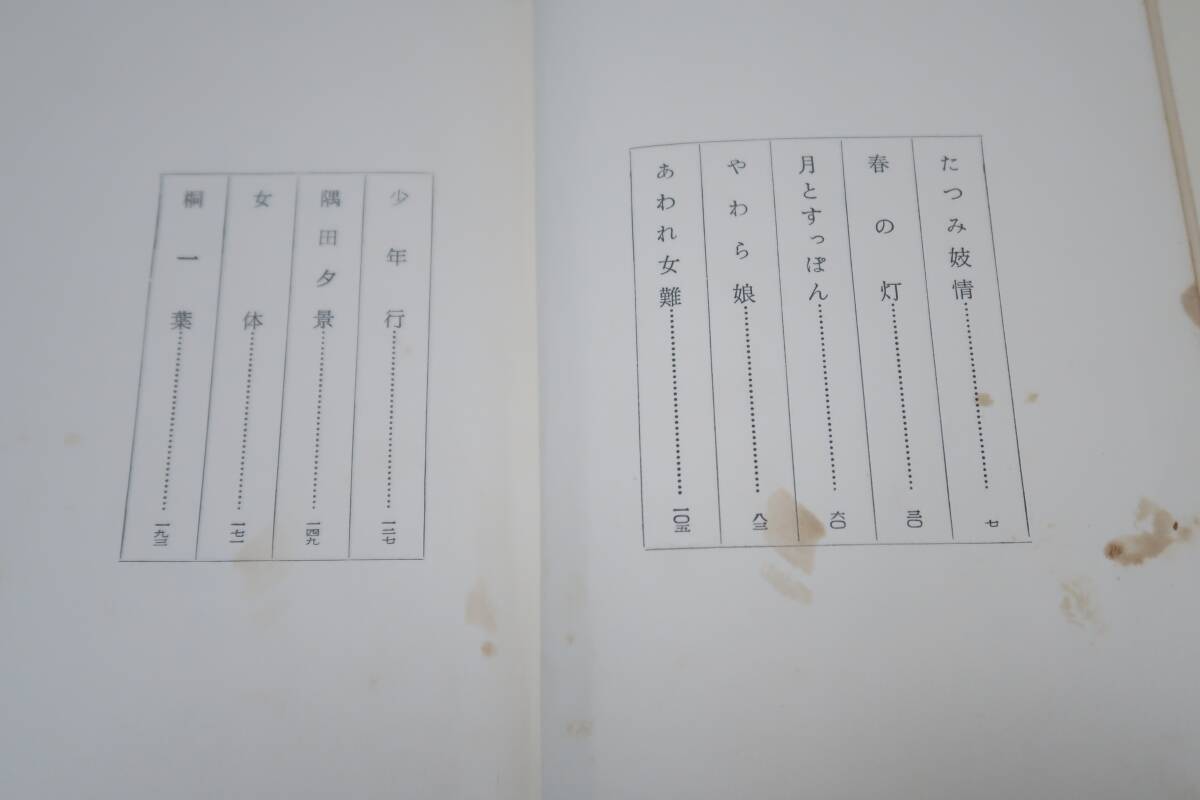 たつみ妓情…………七
春の灯…………三〇
月とすっぽん…………六〇
やわら娘…………八三
あわれ女難…………一〇五
少年行…………一二七
隅田夕景…………一四九
女体…………一七一
桐一葉…………一九三